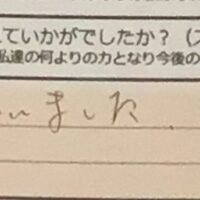 ていかがでしたか？（ス
私達の何よりの力となり今後の
いました